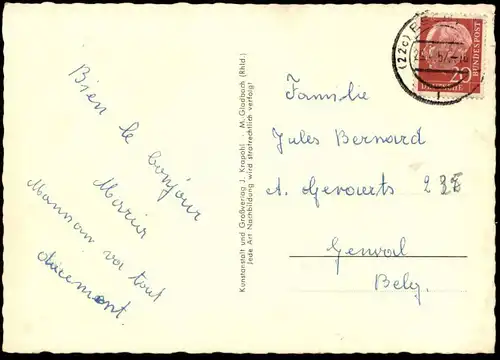 Bien le bonjour
Maman va tout
doucement
Kunstanstalt und Großverlag J. Krapohl · M. Gladbach (Rhld.)
Jede Art Nachbildung wird strafrechtlich verfolgt
(22c)
20
DEUTSCHE
BUNDESPOST
Familie
Jules Bernard
A. Gevaerts
Genval
Belg.